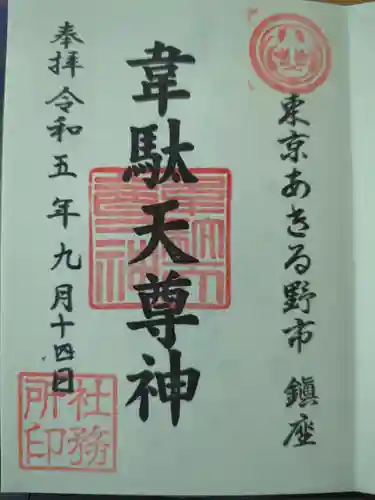 東京あきる野市 鎮座
韋駄天尊神
奉拝 令和五年九月十四日
社務
所印